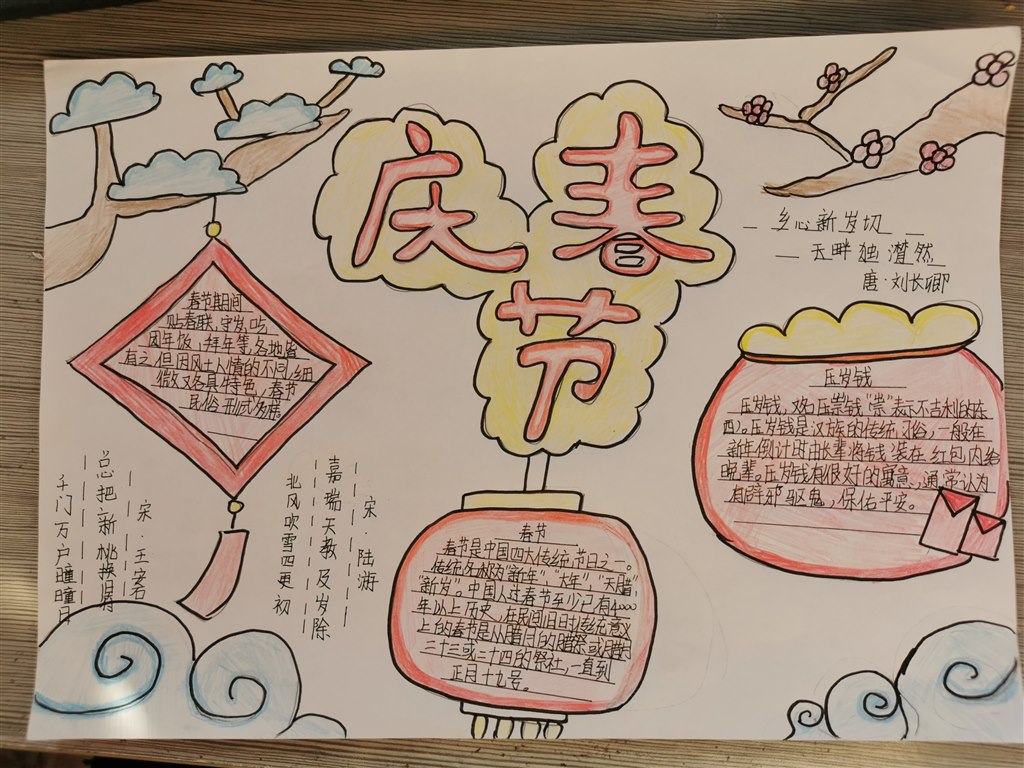 庆春节
春节期间
贴春联，守岁，吃
团年饭，拜年等，各地皆
有之，但因风土人情的不同，细
微又各具特色，春节
民俗形式多样。
乡心新岁切
天畔独潸然
唐·刘长卿
压岁钱
压岁钱，又名压祟钱"祟"表示不吉利的东
西）。压岁钱是汉族的传统习俗，一般在
新年倒计时由长辈将钱装在红包内给
晚辈。压岁钱有很好的寓意，通常认为
能辟邪驱鬼，保佑平安。
宋·王安石
总把新桃换旧符
千门万户曈曈日
宋·陆游
嘉瑞天教及岁除
北风吹雪四更初
春节
春节是中国四大传统节日之一。
传统名称为"新年"，"大年"，"天腊"，
"新岁"。中国人过春节至少已有4000
年以上历史，在民间旧日传统意义
上的春节是从腊月的腊祭或腊月
二十三或二十四的祭灶，一直到
正月十九号。